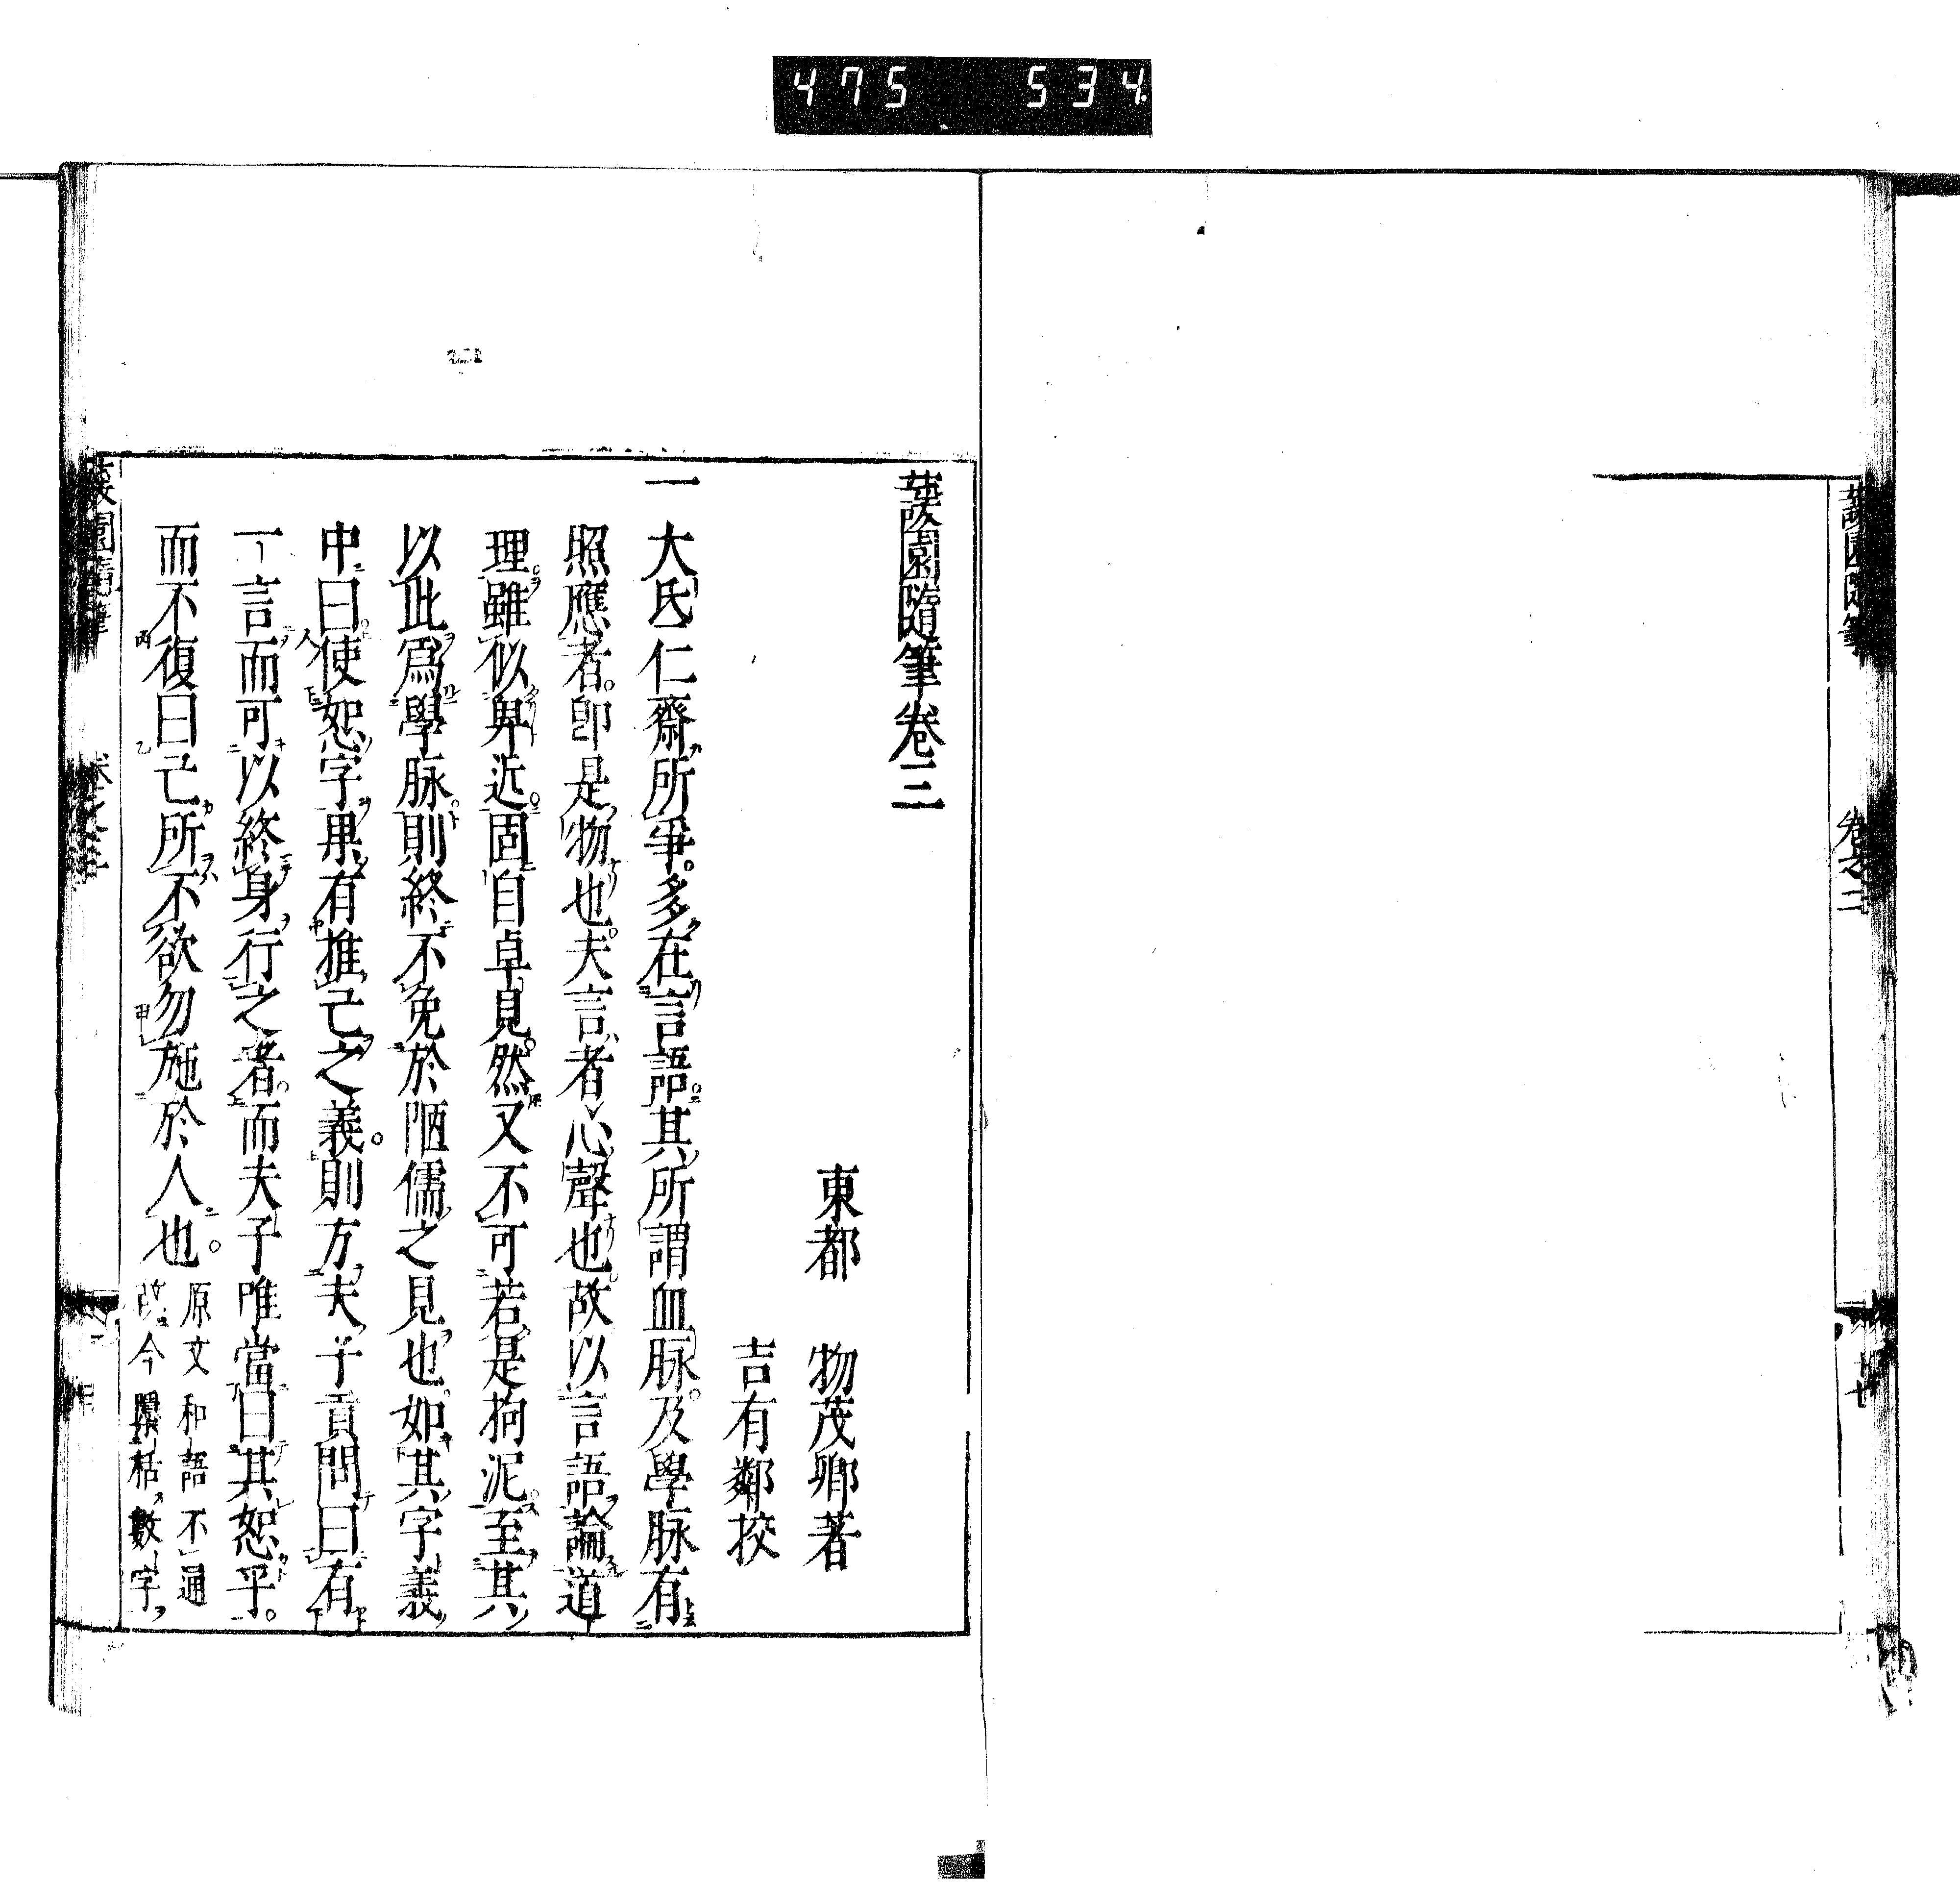 475 534
蘐園隨筆 卷之二
蘐園隨筆卷三
東都 物茂卿著
吉有鄰挍
一大氐仁齋所爭。多在言語。其所謂血脉。及學脉有
照應者。卽是物也。夫言者心聲也。故以言語論道
理。雖似卑近。固自卓見。然又不可若是拘泥。至其
以此爲學脉。則終不免於陋儒之見也。如其字義
中。曰使恕字果有推己之義。則方夫子貢問曰有
一言而可以終身行之者。而夫子唯當曰其恕乎。
而不復曰己所不欲勿施於人也。
原文和語不通
改今檃栝數字
蘐園隨筆 卷之三